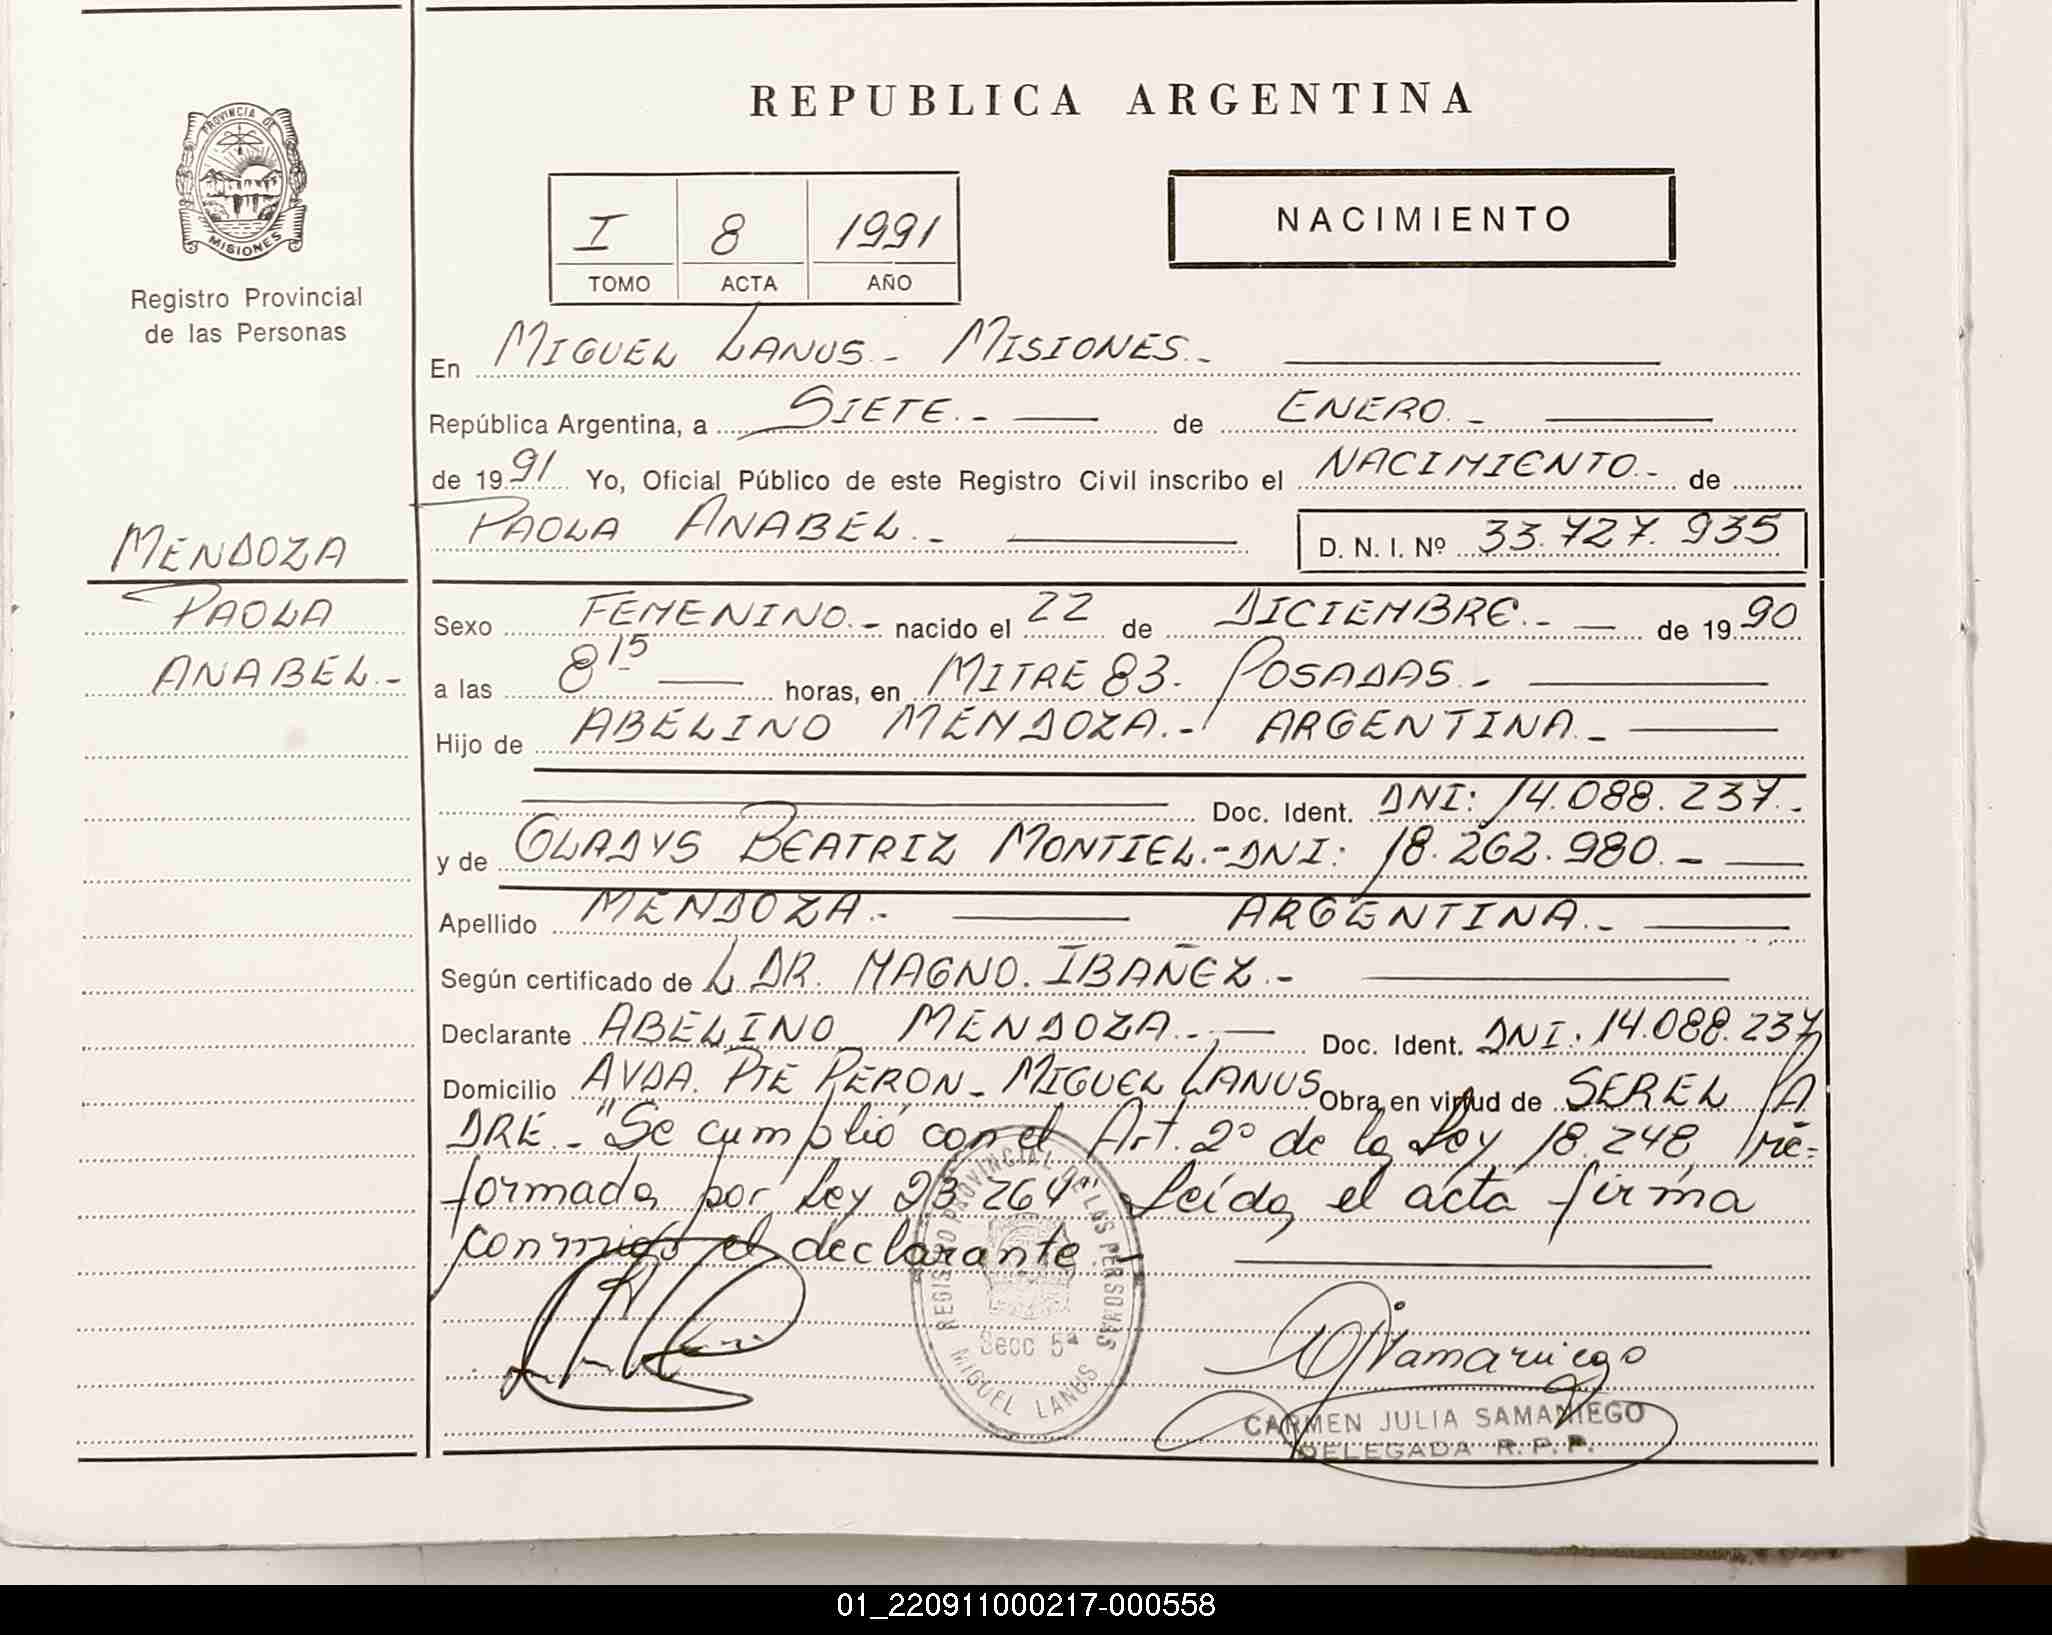 REPUBLICA ARGENTINA
PROVINCIA DE
MISIONES
Registro Provincial
de las Personas
I 8 1991
TOMO ACTA AÑO
NACIMIENTO
En MIGUEL LANUS.- MISIONES.-
República Argentina, a SIETE.- de ENERO.-
de 1991 Yo, Oficial Público de este Registro Civil inscribo el NACIMIENTO.- de
PAOLA ANABEL.- D. N. I. Nº 33.727.935
MENDOZA
PAOLA
ANABEL.-
Sexo FEMENINO.- nacido el 22 de DICIEMBRE.- de 1990
a las 8 15 horas, en MITRE 83. POSADAS.-
Hijo de ABELINO MENDOZA.- ARGENTINA.-
Doc. Ident. DNI: 14.088.237.-
y de GLADYS BEATRIZ MONTIEL.- DNI: 18.262.980.-
Apellido MENDOZA.- ARGENTINA.-
Según certificado de L DR. MAGNO. IBAÑEZ.-
Declarante ABELINO MENDOZA.- Doc. Ident. DNI. 14.088.237
Domicilio AVDA. PTE PERON_ MIGUEL LANUS Obra en virtud de SER EL PA
DRE_ "Se cumplió con el Art. 2º de la Ley 18.248, re=
formada por Ley 23.264" Leída el acta firma
conmigo el declarante -
REGISTRO PROVINCIAL DE LAS PERSONAS
Secc 5ª
MIGUEL LANUS
CJSamaniego
CARMEN JULIA SAMANIEGO
DELEGADA R. P. P.
01_220911000217-000558